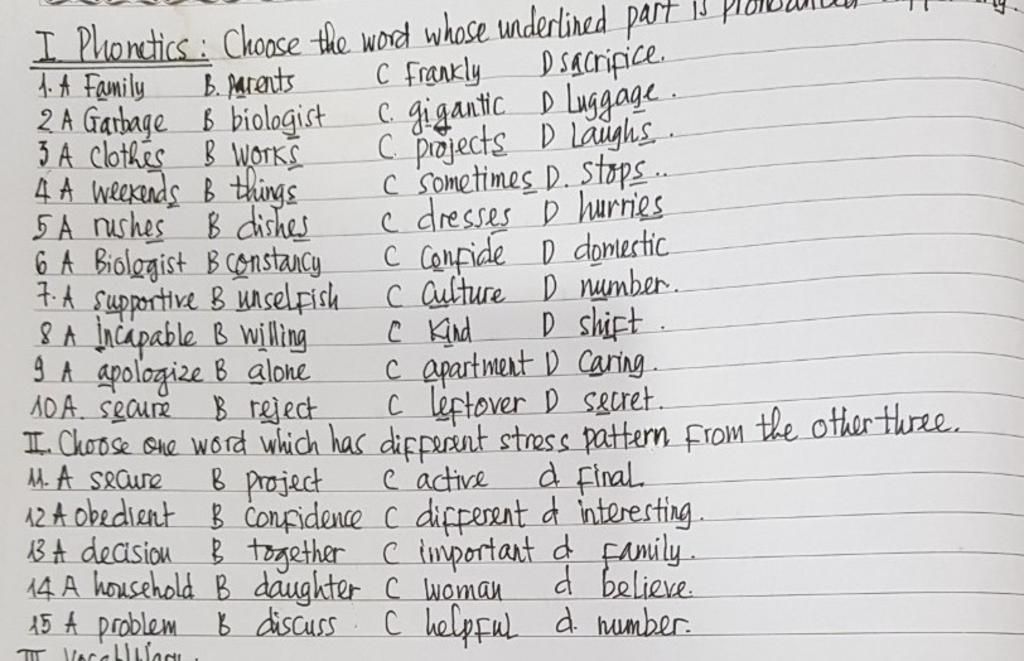 I Phonetics: Choose the word whose underlined part is pronounced
1. A Family B. parents C Frankly D sacrifice.
2 A Garbage B biologist C. gigantic D Luggage.
3 A Clothes B works C. projects D Laughs.
4 A weekends B things C sometimes D. stops..
5 A rushes B dishes C dresses D hurries
6 A Biologist B constancy C Confide D domestic
7. A supportive B unselfish C Culture D number.
8 A Incapable B willing C Kind D shift.
9 A apologize B alone C apartment D Caring.
10 A. secure B reject C leftover D secret.
II. Choose one word which has different stress pattern From the other three.
11. A secure B project C active d Final.
12 A obedient B Confidence C different d interesting.
13 A decision B together C important d Family.
14 A household B daughter C woman d believe.
15 A problem B discuss C helpful d. number.
III